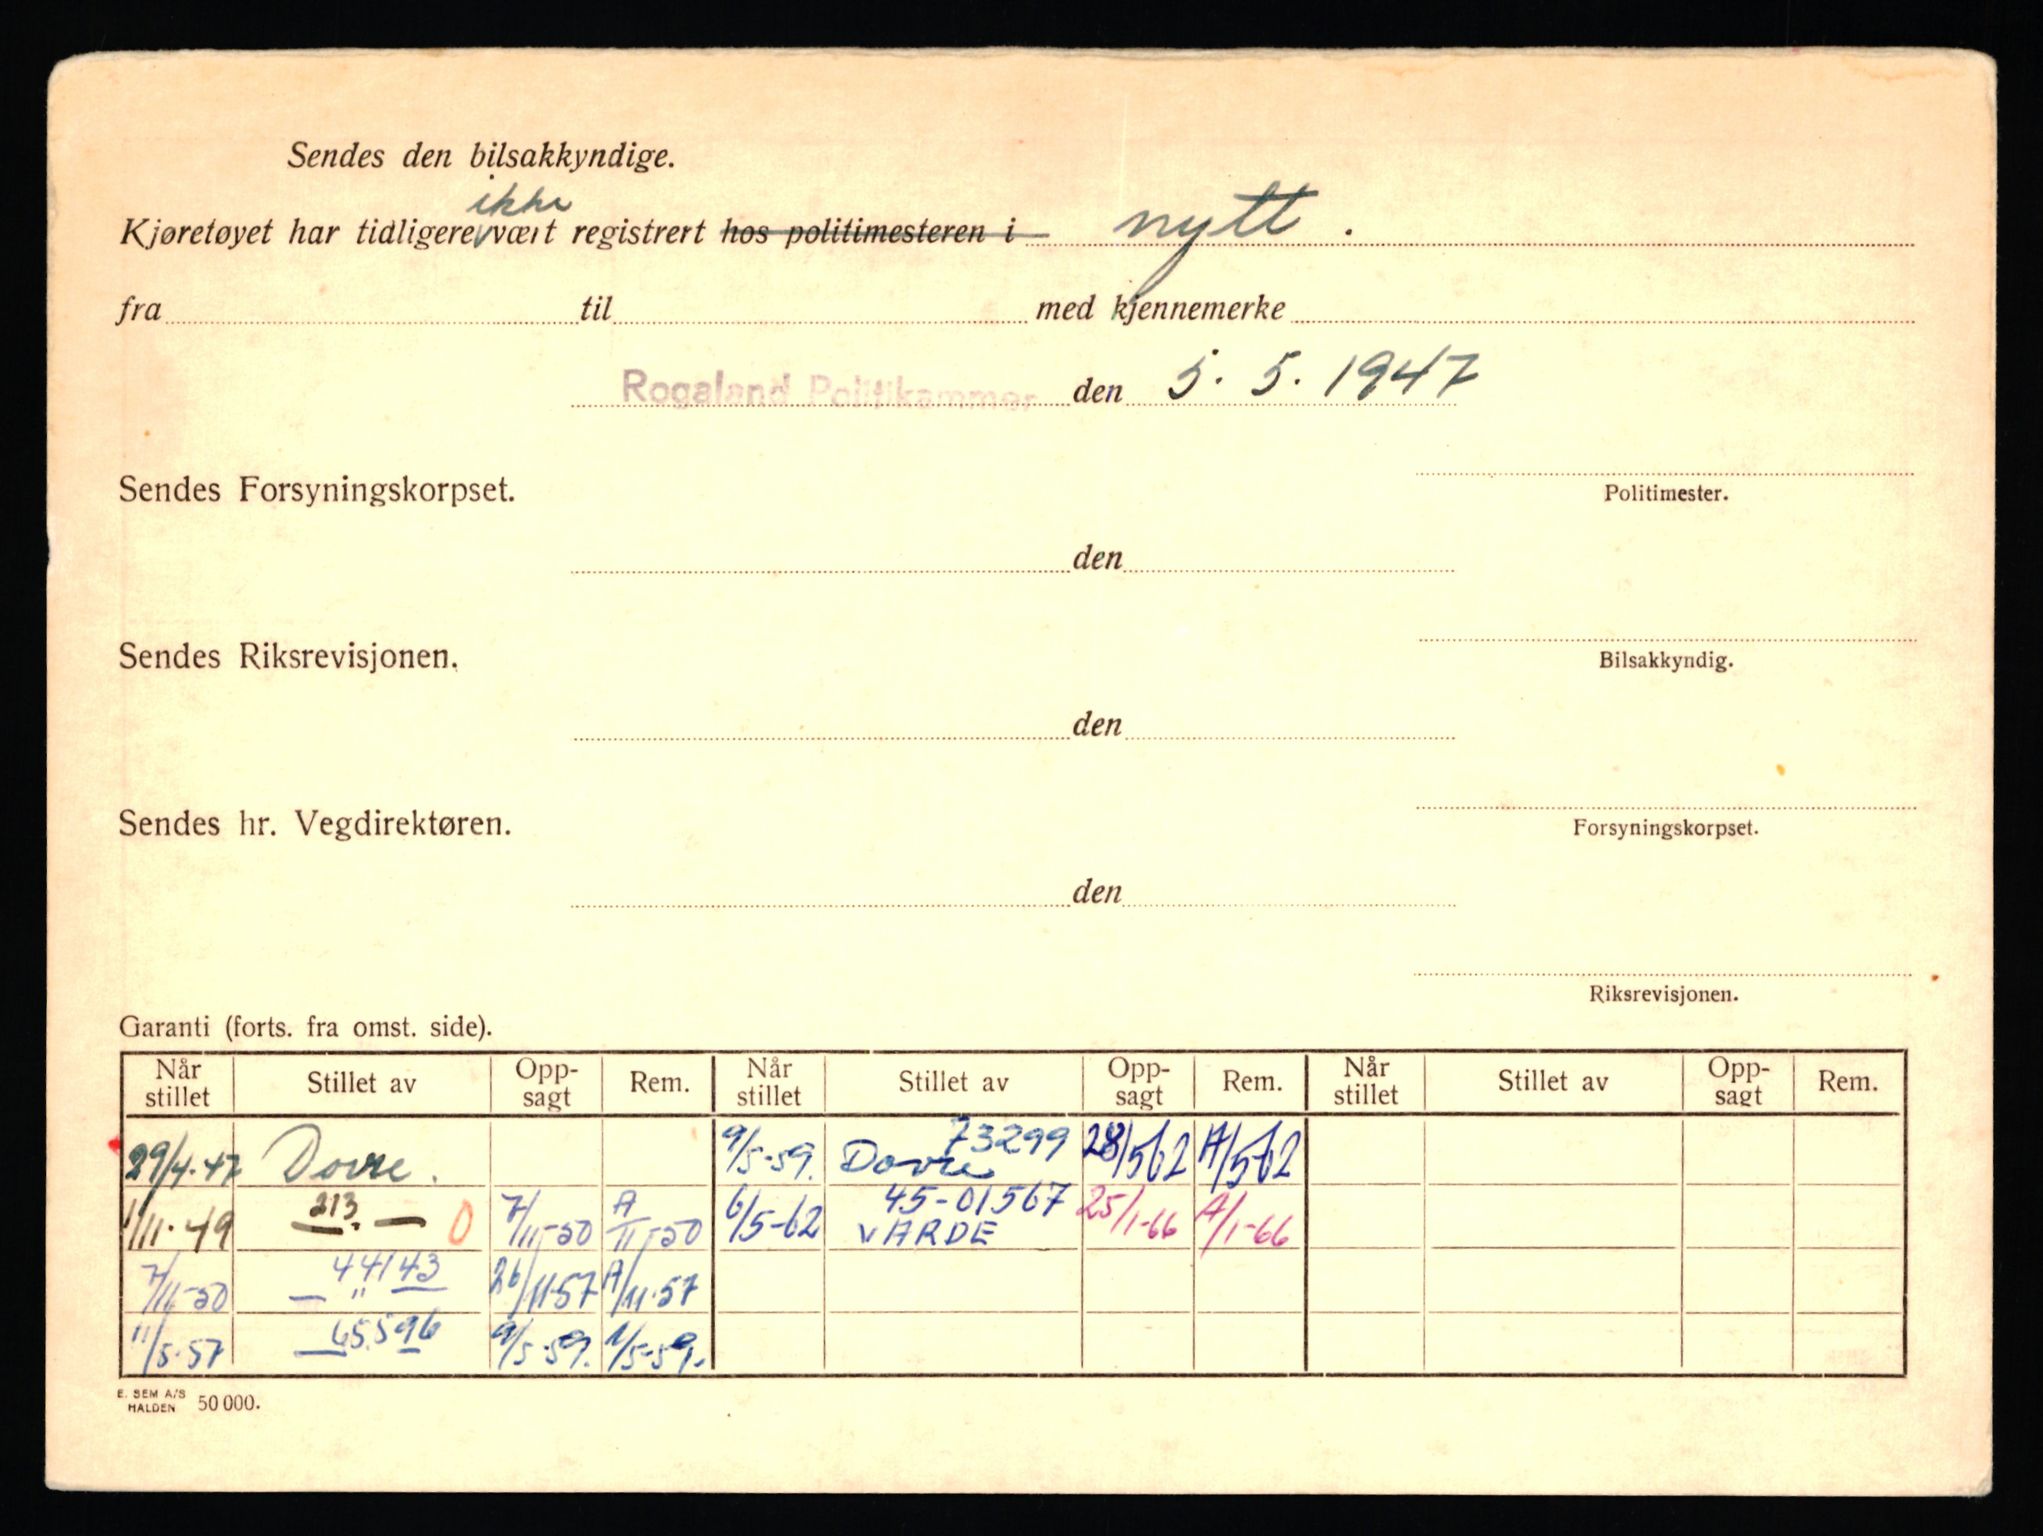 Sendes den bilsakkyndige.
ikke
Kjøretøyet har tidligere vært registrert hos politimesteren i nytt .
fra til med kjennemerke
Rogaland Politikammer den 5. 5. 1947
Sendes Forsyningskorpset.
Politimester.
den
Sendes Riksrevisjonen.
Bilsakkyndig.
den
Sendes hr. Vegdirektøren.
Forsyningskorpset.
den
Riksrevisjonen.
Garanti (forts. fra omst. side).
Når stillet Stillet av Opp-sagt Rem. Når stillet Stillet av Opp-sagt Rem. Når stillet Stillet av Opp-sagt Rem.
29/4-47 Dovre. 9/5-59. Dovre 73299 28/5 62 A/5-62
1/11-49 — 213. — 0 7/11-50 A/11-50 6/5-62 45-01567 VARDE 25/1-66 A/1-66
7/11-50 — " 44143 26/11-57 A/11-57
11/5-57 65596 9/5-59. 1/5-59.
E. SEM A/S
HALDEN 50 000.